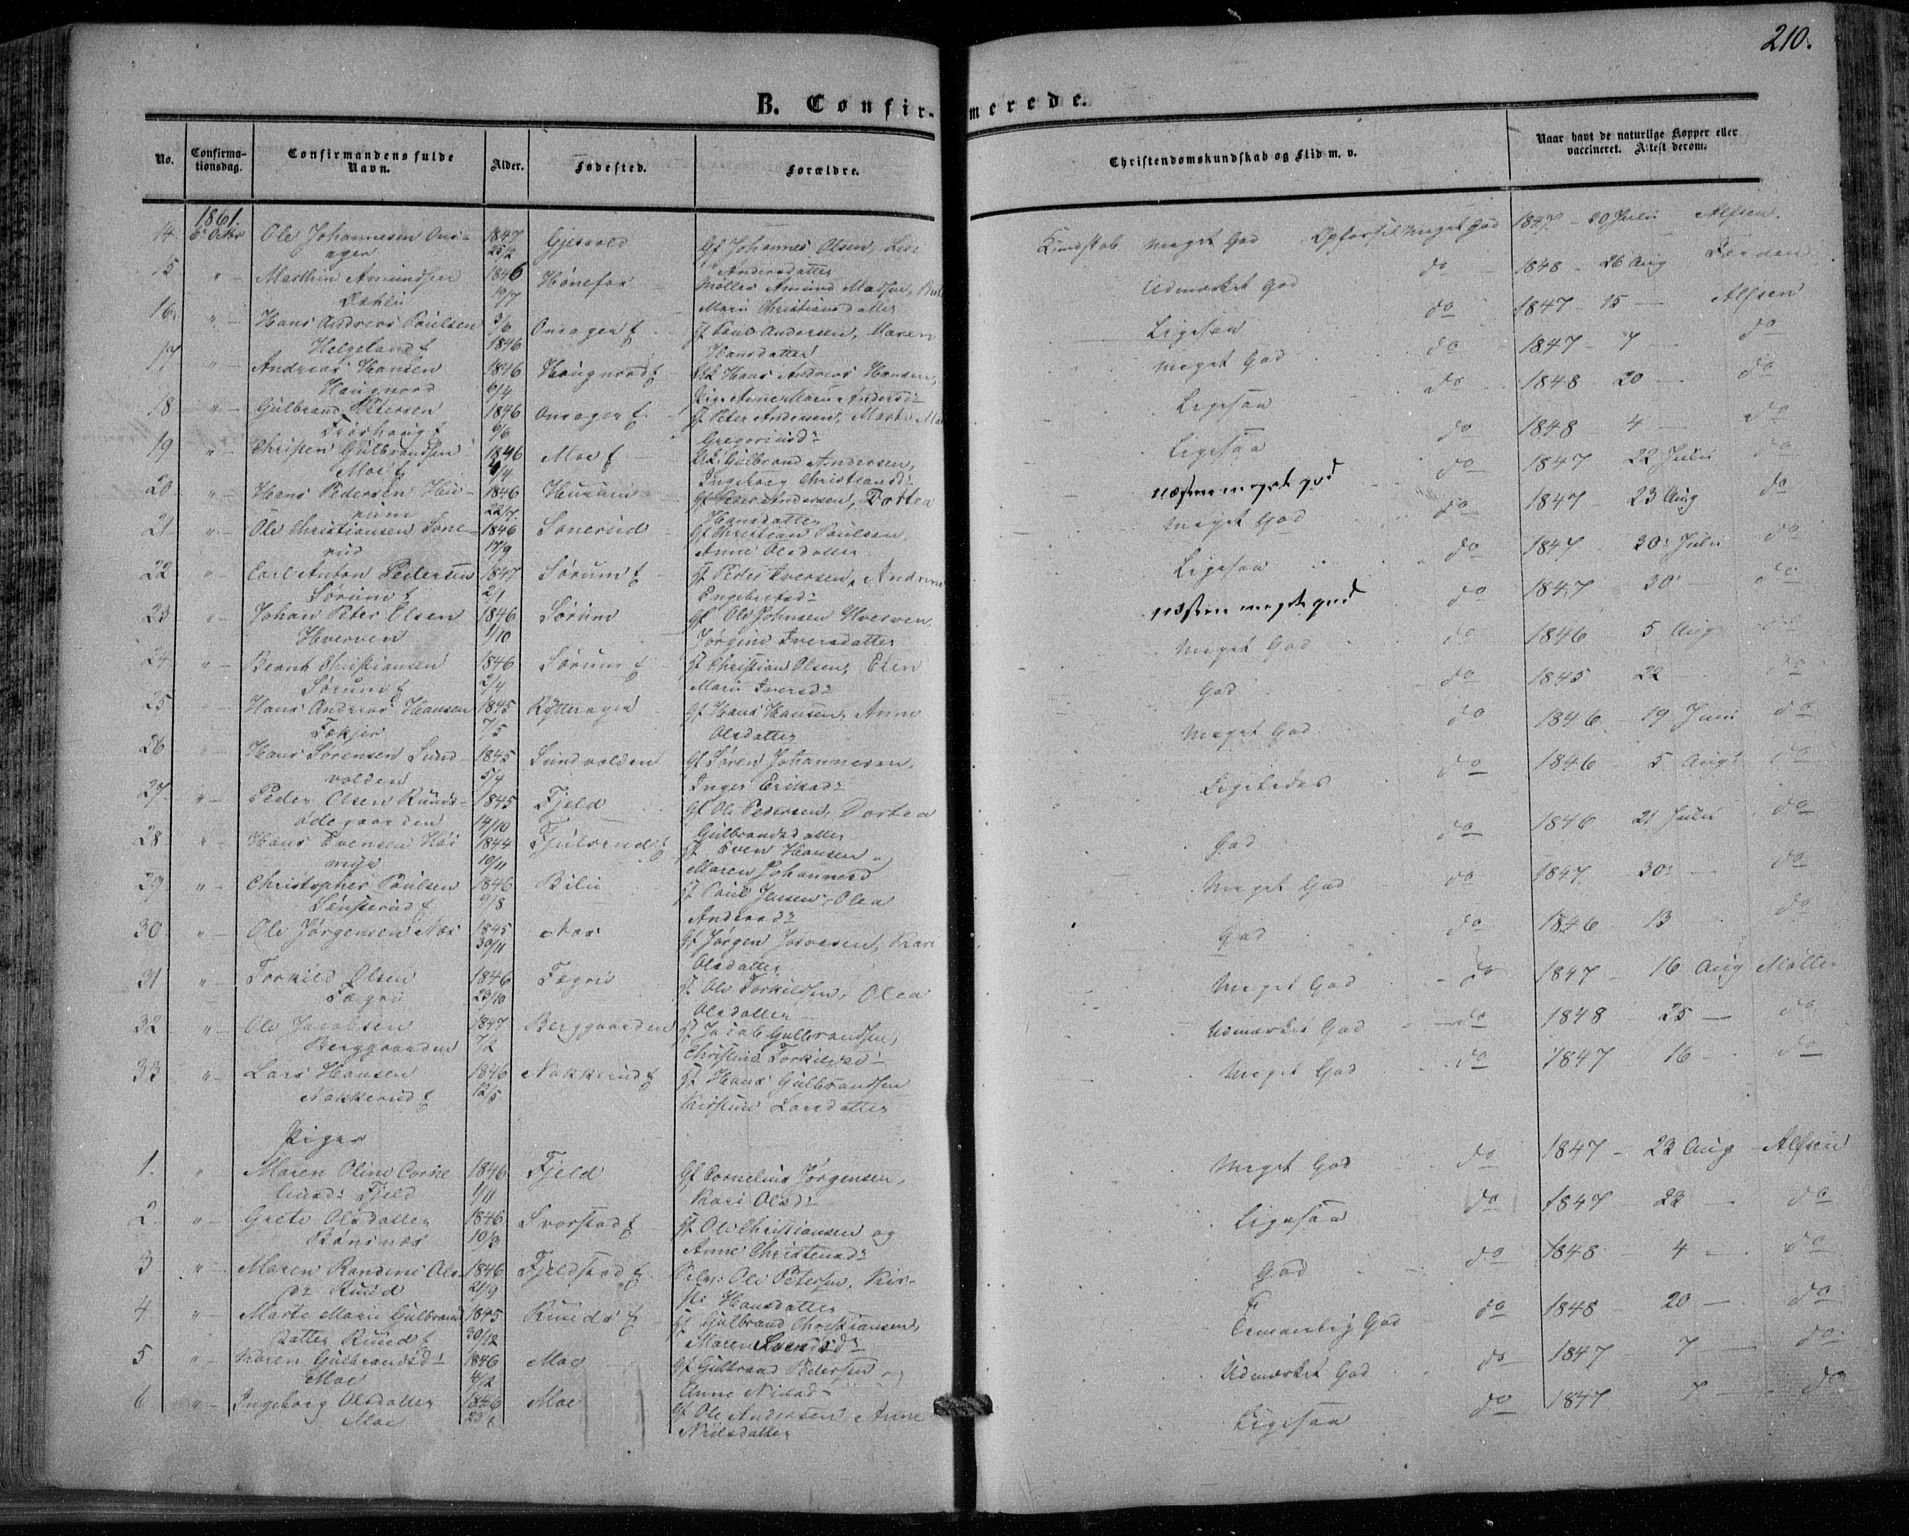 210.
B. Confirmerede.
No. Confirmationsdag. Confirmandens fulde Navn. Alder. Fødested. Forældre. Christendomskundskab og Flid m. v. Naar havt de naturlige Kopper eller vaccineret. Attest derom.
1861.
14 6 Octbr Ole Johannesen Onsager 1847 25/2 Gf Johannes Olsen, Andersdatter Kundskab meget God Opførsel meget God 1847 - 20 Juli Alfsen.
15 " Marthin Amundsen 1846 19/7 Hønefos Møller Amund Madsen, Marie Christiansdatter Udmærket God do 1848 - 26 Aug
16. " Hans Andreas Paulsen Helgeland 3/6 1846 Onsager Paul Andersen, Maren Hansdatter Ligesaa do 1847 15 Alfsen
17 " Andreas Hansen Haugnord 1846 6/4 Haugnord Hans Andreas Hansen, Anne Marie Andersd: meget God do 1847 - 7 do
18 " Gulbrand Petersen 1846 6/6 Onsager Peter Andersen, Marte Gregoriusd: Ligesaa do 1848 20 do
19 " Christen Gulbrandsen Moe 1846 Moe Gulbrand Andersen, Ingeborg Christiansd: Ligesaa do 1848 - 4 do
20 " Hans Pedersen Hurum 1846 22/7. Hurum Gf Peder Andersen, Dortea Hansdatter næsten meget god do 1847 22 Juli do
21 " Ole Christiansen Sonerud 1846 17/9 Sonerud Gf Christian Paulsen, Anne Olsdatter Meget God do 1847 23 Aug do
22 " Carl Anton Pedersen Sørum 1847 2/1 Sørum Peder Iversen, Andrine Engebretsd: Ligesaa do 1847 30 Juli do
23 " Johan Peter Olsen Hverven 1846 1/10 Sørum Gf Ole Johnsen Hverven Jørgine Iversdatter næsten meget god do 1847 30 do
24 " Bernt Christiansen Sørum 1846 2/4 Sørum Christian Olsen, Elen Marie Iversd: Meget God do 1846 5 Aug do
25 Hans Andreas Hansen 1845 7/5 Rytterager Gf Hans Hansen, Anne Olsdatter God do 1845 22 do
26 Hans Sørensen Sundvolden 1845 5/4 Sundvolden Gf Søren Johannesen, Inger Eriksd: Meget God do 1846 - 19 Juni do
27 " Peder Olsen Rundsødegaarden 1845 14/10 Fjeld Gf Ole Pedersen, Dortea Gulbrandsdatter Ligeledes do 1846 5 Aug do
28 " Hans Evensen 1844 19/11 Fjulsrud Even Hansen, Maren Johannesd God do 1846 21 Juli do
29 " Christopher Paulsen Sønsterud 1846 9/8 Bili Paul Jensen, Olea Andersd: Meget God do 1847 30 do
30 " Ole Jørgensen Næs 1845 30/11 Næs Gf Jørgen Joravsen, Kari Olsdatter God do 1846 - 13 do
31 " Torkild Olsen Fægri 1846 23/10 Fægri Ole Torkildsen, Olea Olsdatter Meget God do 1847 - 16 Aug Møller
32 " Ole Jacobsen Berggaarden 1847 7/2 Berggaarden Jacob Gulbrandsen, Christine Torkildsd: Udmærket God do 1848 - 25 do
33 " Lars Hansen Nakkerud 1846 12/5 Nakkerud Hans Gulbrandsen Kirstine Larsdatter Meget God do 1847 16 do
Piger
1. " Maren Oline Corneliusd: Fjeld 1846 1/11 Fjeld Gf Cornelius Jørgensen, Kari Olsd: Meget God do 1847 - 23 Aug - Alfsen
2 " Grete Olsdatter Bønsnæs 1846 19/3 Svarstad Ole Christiansen og Anne Christensd: Ligesaa do 1847 - 22 do
3 " Maren Randine Olsd: Ruud 1846 21/9 Fjeldstad Ole Petersen, Kirsti Hansdatter God do 1848 - 4 do
4 " Marte Marie Gulbrandsdatter Ruud 1845 30/12 Ruud Gulbrand Christiansen, Maren Larsd: Temmelig God do 1848 20 do
5 " Karen Gulbrandsd: Moe 1846 4/2 Moe Gf Gulbrand Pedersen, Anne Nielsd Udmærket God do 1847 - 7 do
6 " Ingeborg Olsdatter Moe 1846 Moe Gf Ole Andersen, Anne Nielsdatter Ligesaa do 1847 7 do